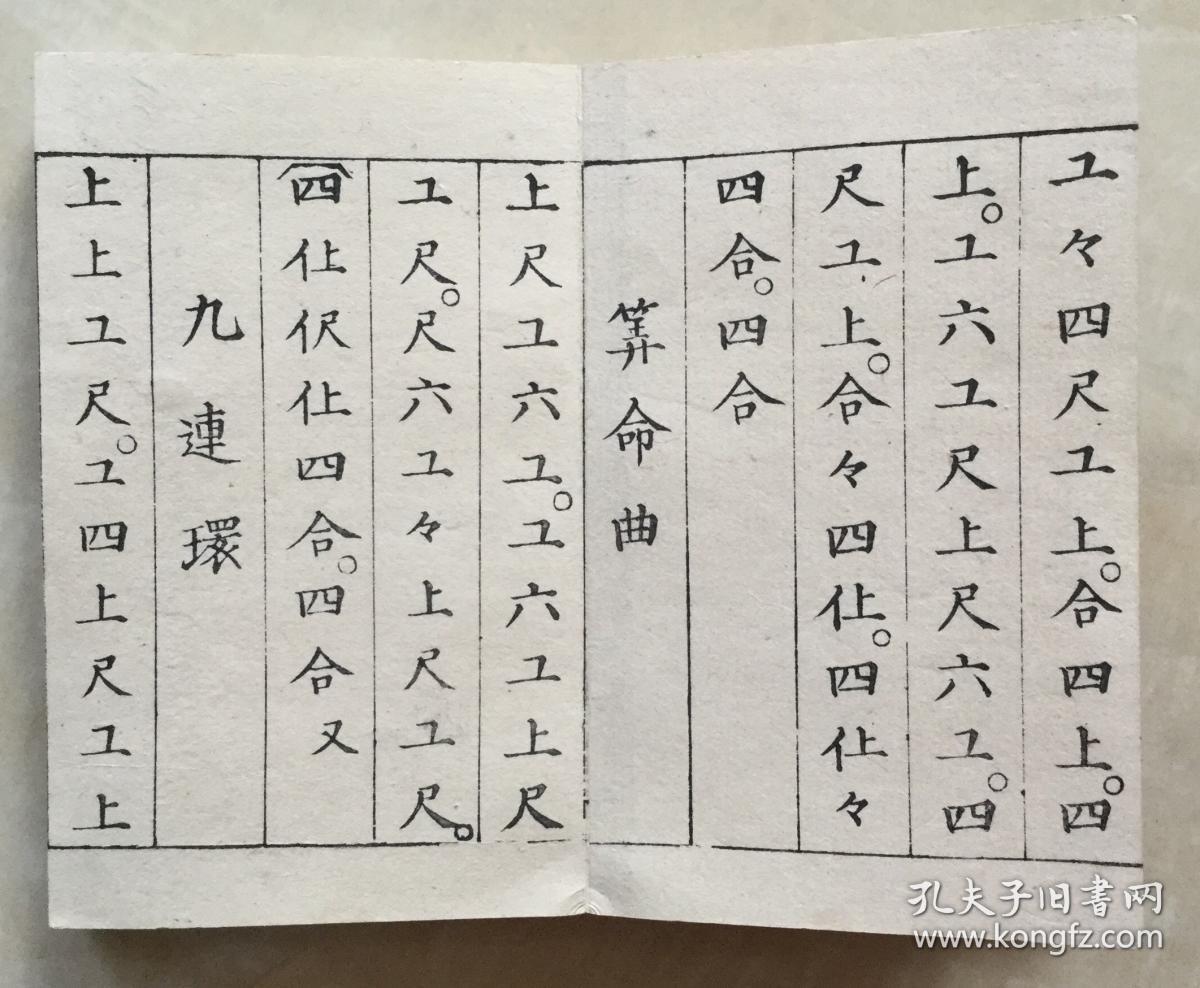 工々四尺工上。合四上。四
上。工六工尺上尺六工。四
尺工上。合々四仩。四仩々
四合。四合
筭命曲
上尺工六工。工六工上尺
工尺。尺六工々上尺工尺。
四仩伬仩四合。四合又
九連環
上上工尺。工四上尺工上
孔夫子旧書网
www.kongfz.com